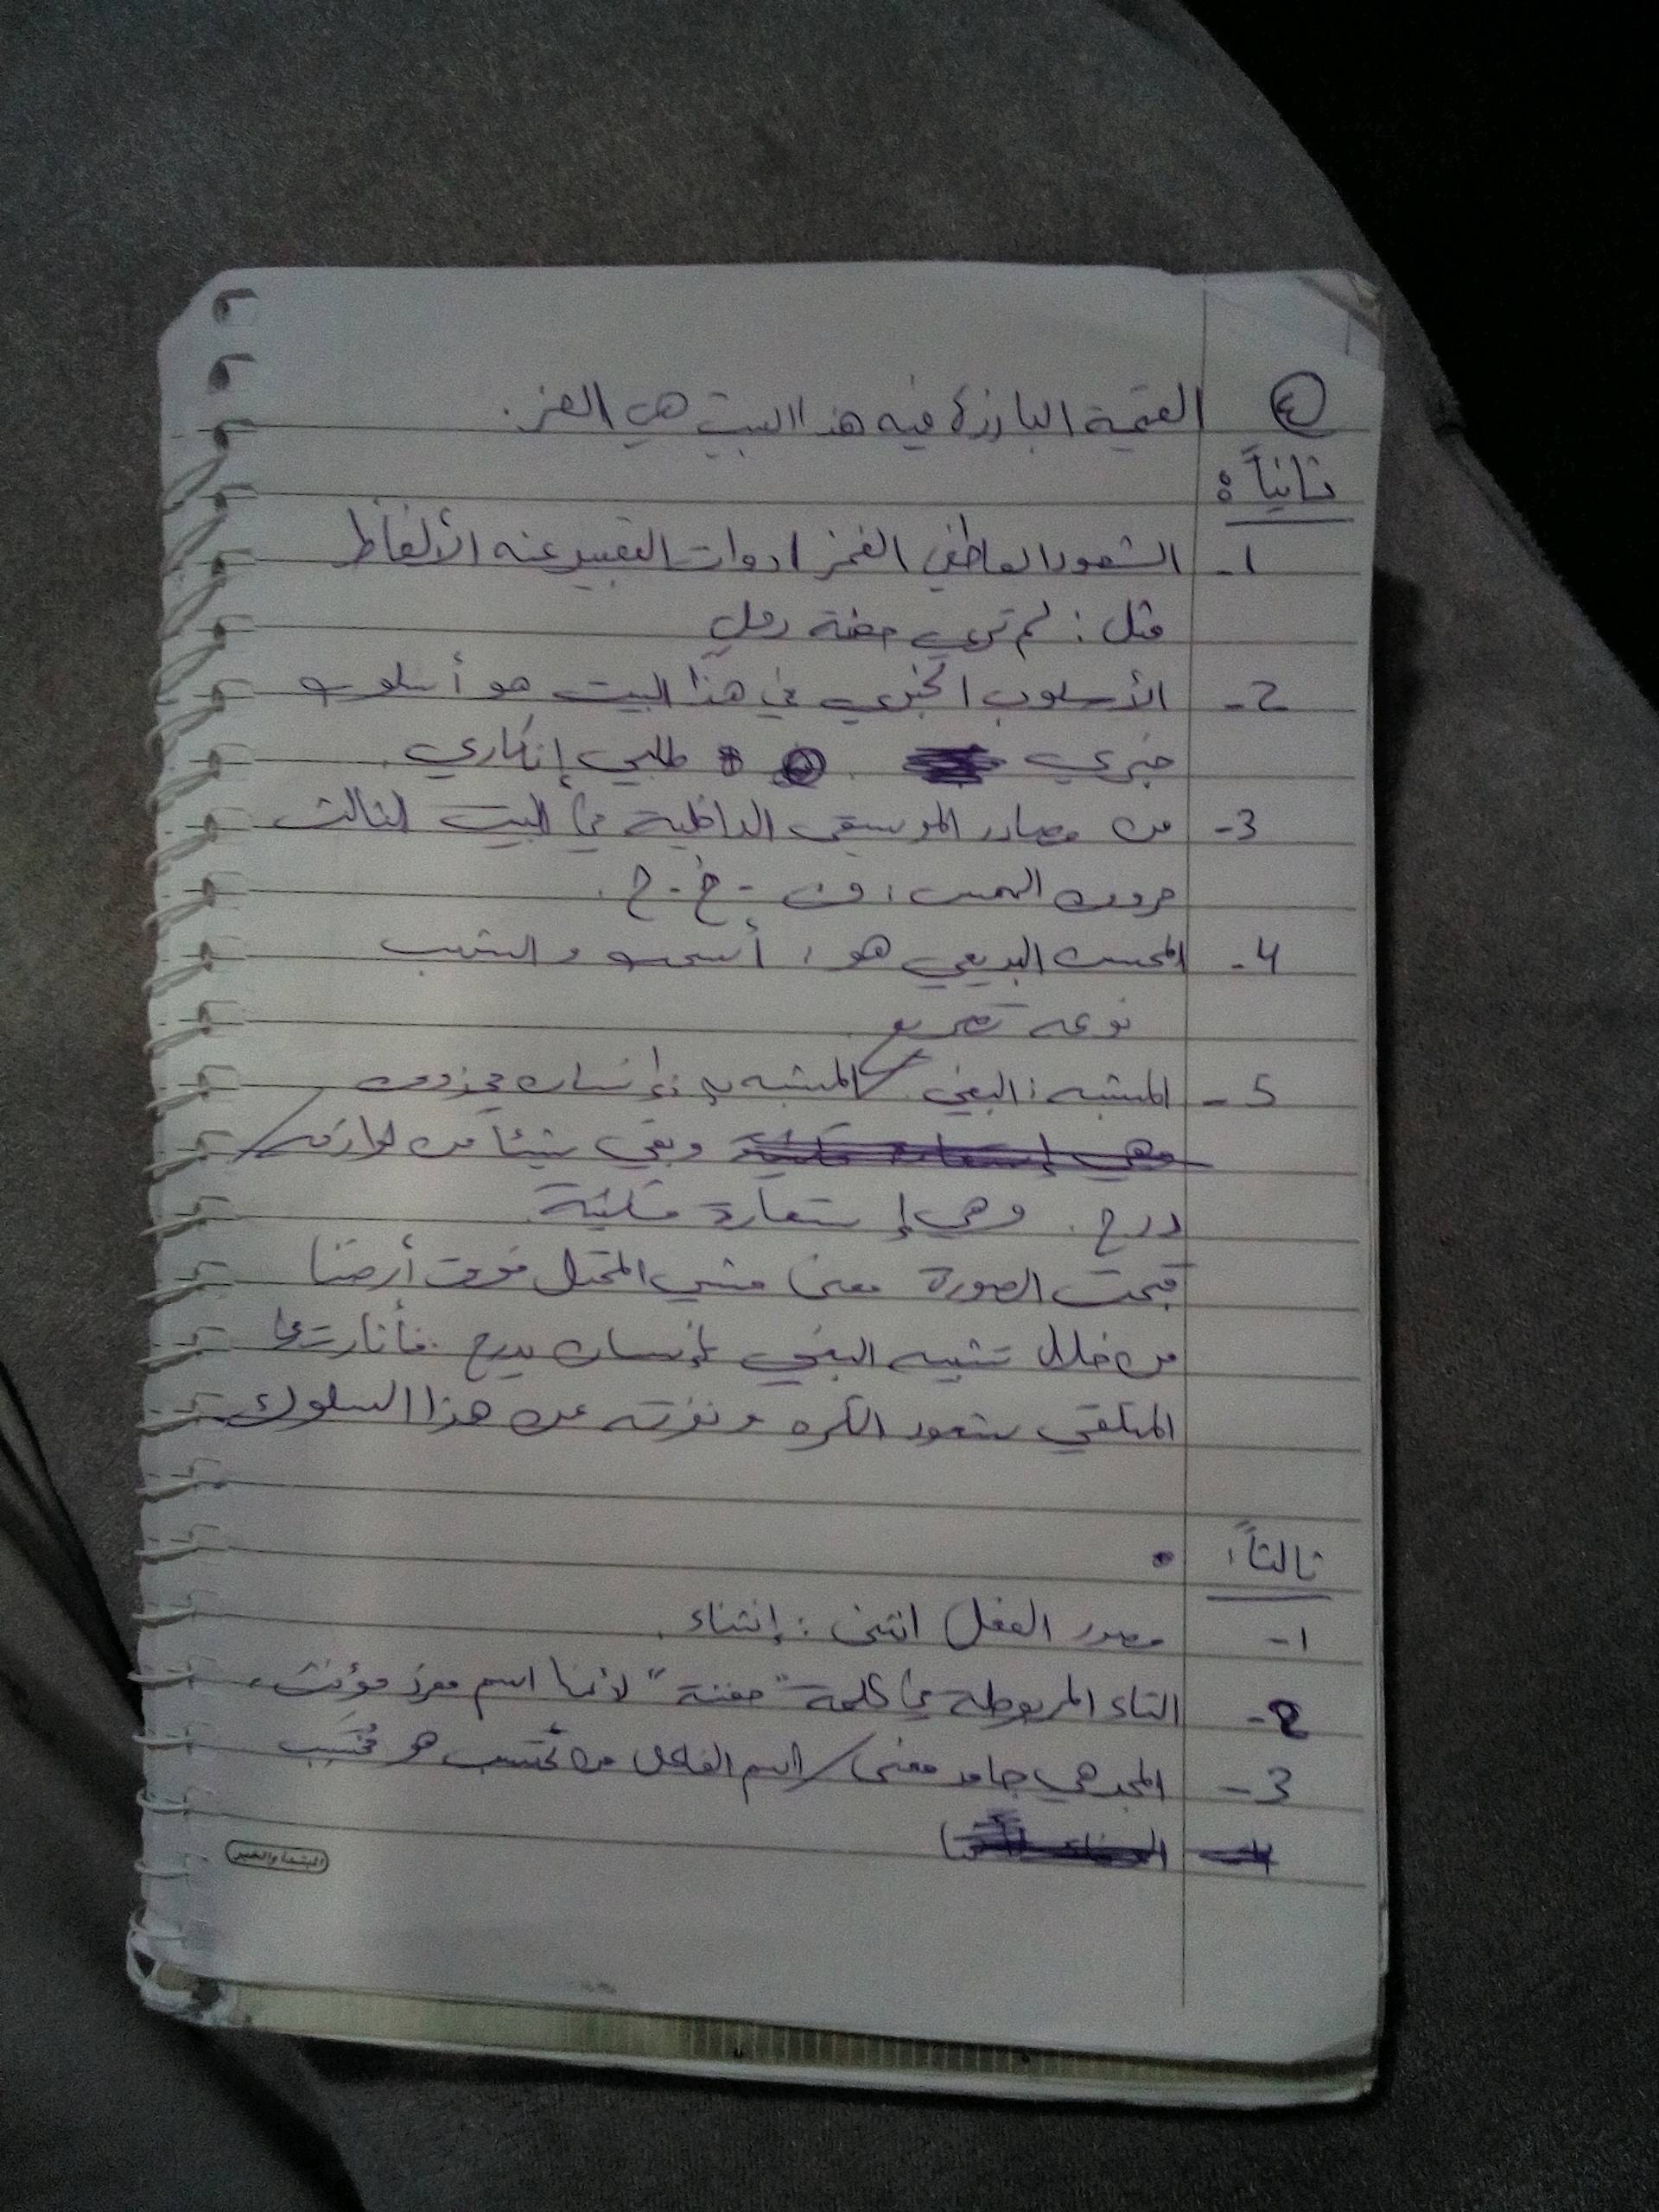 ④ القيمة البارزة فيه هذا البيت هي العز.
ثانياً:
1- الشعور العاطفي الفخر ادوات التعبير عنه الألفاظ
مثل: لم ترى حفنة رمل
2- الأسلوب الخبري في هذا البيت هو أسلوب
خبري طلبي إنكاري.
3- من مصادر الموسيقى الداخلية في البيت الثالث
حروف الهمس: ف - خ - ح.
4- المحسن البديعي هو: أسحب والسحب
نوعه تصريع
5- المشبه: البغي / المشبه به: إنسان محذوف
وهي إستعارة مكنية وبقي شيئاً من لوازمه /
درج. وهي إستعارة مكنية.
قبحت الصورة معنى مشي المحتل فوق أرضنا
من خلال تشبيه البغي بإنسان يدرج. فأثارت في
المتلقي شعور الكره ونفرته من هذا السلوك
ثالثاً:
1- مصدر الفعل انثنى: إنثناء.
2- التاء المربوطة في كلمة "حفنة" لأنها اسم مفرد مؤنث.
3- المجد هي جامد معنى / اسم الفاعل من تحتسب هو مُحتَسِب
4-
المبتدأ والخبر